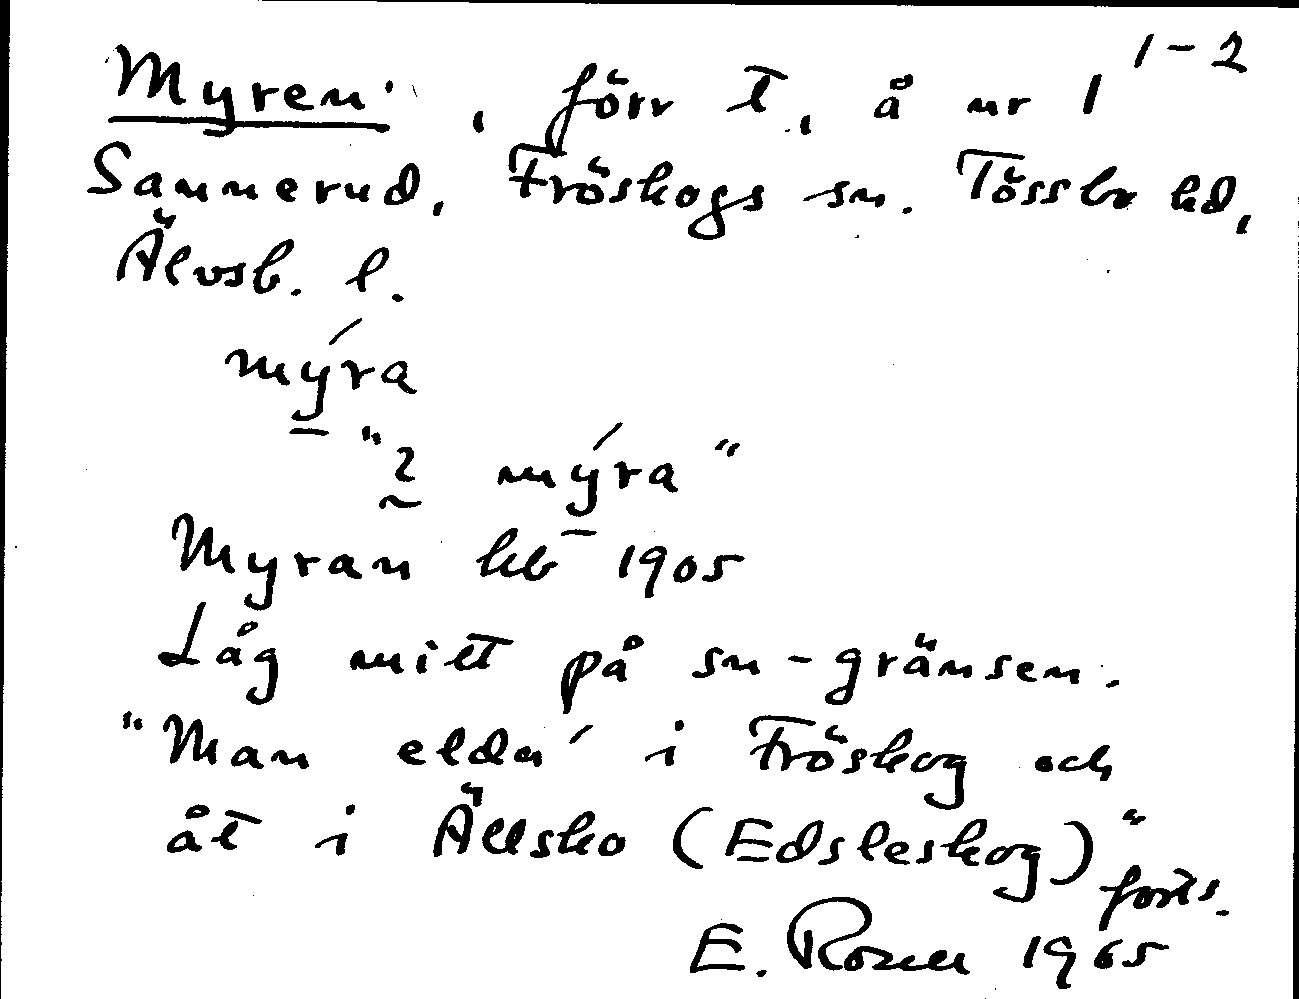 1-2
Myren, förr t., å nr 1
Sannerud, Fröskogs sn. Tössbo hd,
Älvsb. l.
mýra
"2 mýra"
Myran kb 1905
Låg mitt på sn-gränsen.
"Man elda' i Fröskog och
åt i Ällsko (Edsleskog)"
forts.
E. Rosell 1965